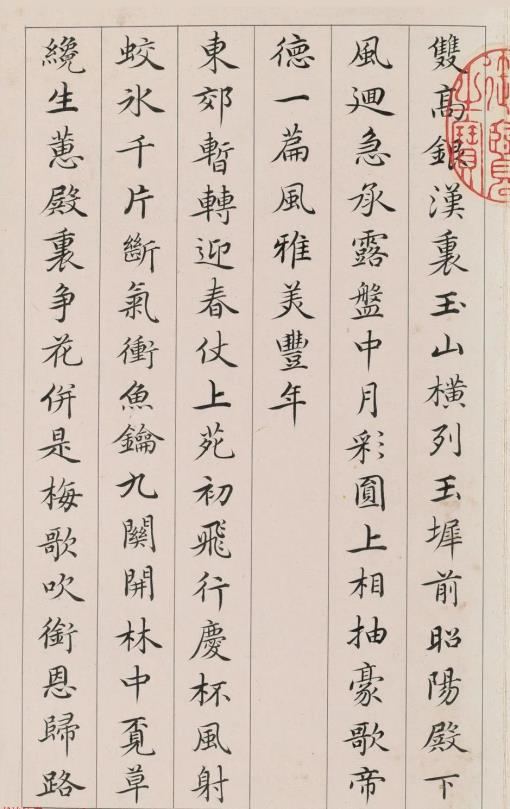 雙高銀漢裏玉山橫列玉墀前昭陽殿下
風廻急承露盤中月彩圓上相抽豪歌帝
德一篇風雅美豐年
東郊暫轉迎春仗上苑初飛行慶杯風射
蛟氷千片斷氣衝魚鑰九關開林中覔草
纔生蕙殿裏争花併是梅歌吹銜恩歸路